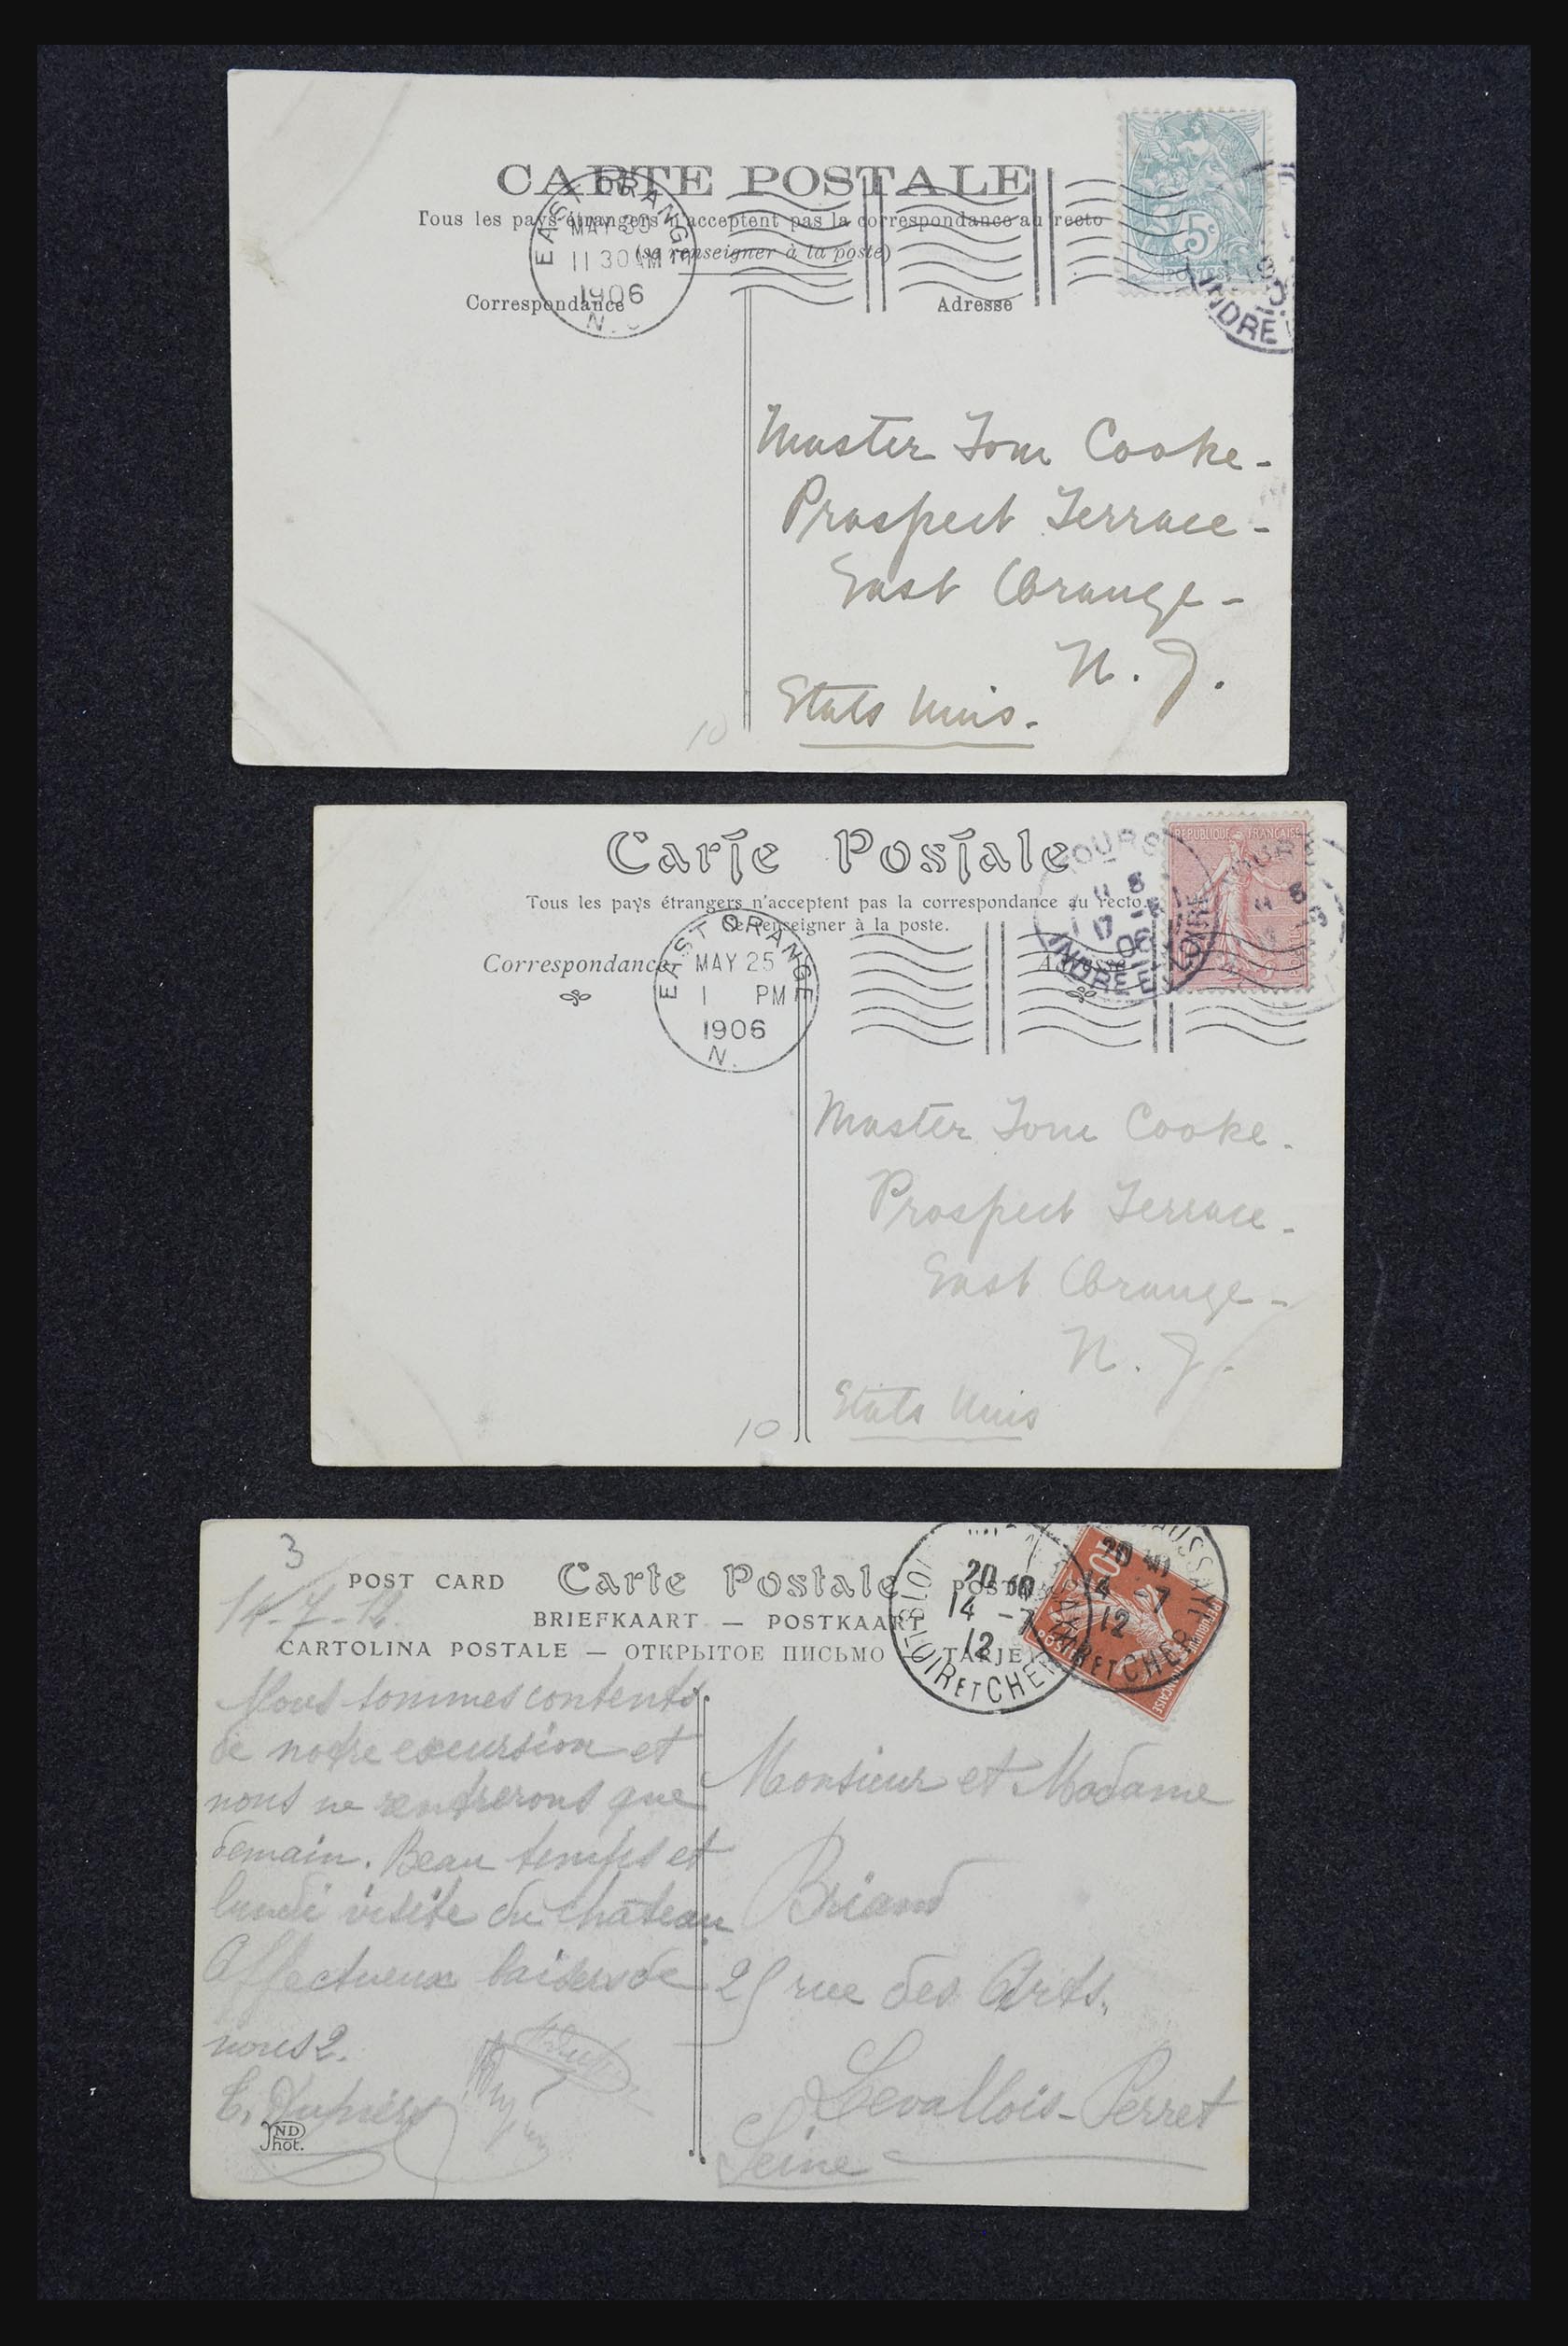 CARTE POSTALE
Tous les pays étrangers n'acceptent pas la correspondance au recto
(se renseigner à la poste)
Correspondance Adresse
EAST ORANGE
MAY 30
11 30 AM
1906
N.
5c
POSTES
INDRE
Master Tom Cooke -
Prospect Terrace -
East Orange -
N. J.
Etats Unis.
10
Carte Postale
Tous les pays étrangers n'acceptent pas la correspondance au recto.
Se renseigner à la poste.
Correspondance Adresse
EAST ORANGE
MAY 25
1 PM
1906
N.
TOURS
17 -5
06
INDRE ET LOIRE
REPUBLIQUE FRANÇAISE
Master Tom Cooke.
Prospect Terrace -
East Orange -
N. J.
Etats Unis
10
3
14-7-12.
POST CARD Carte Postale
BRIEFKAART — POSTKAART
CARTOLINA POSTALE — ОТКРЫТОЕ ПИСЬМО — TARJE
LOIR ET CHER
14 -7
12
10
POSTES
REPUBLIQUE FRANÇAISE
Nous sommes contents
de notre excursion et
nous ne rentrerons que
demain. Beau temps et
lundi visite du château
Affectueux baisers de
nous 2.
ND
Phot.
Monsieur et Madame
Briand
25 rue des Arts.
Levallois-Perret
Seine